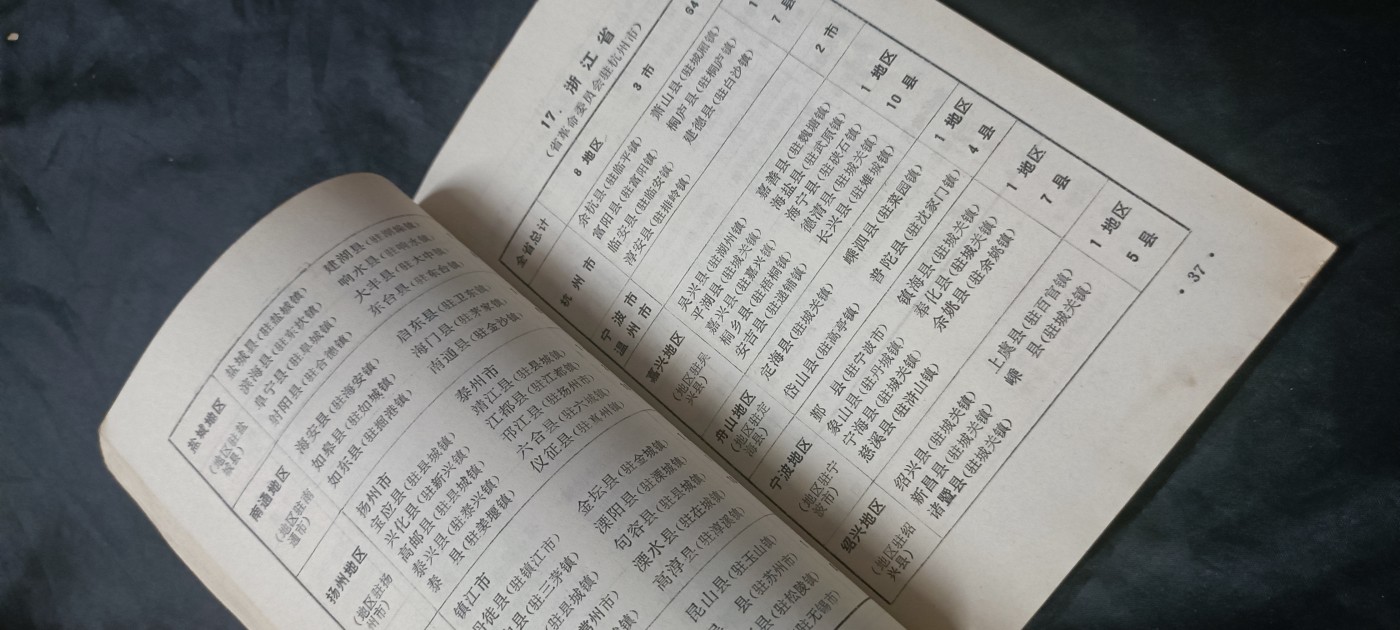 盐城地区
(地区驻盐城县)
盐城县(驻盐城镇) 建湖县(驻湖垛镇)
滨海县(驻东坎镇) 响水县(驻响水镇)
阜宁县(驻阜城镇) 大丰县(驻大中镇)
射阳县(驻合德镇) 东台县(驻东台镇)
南通地区
(地区驻南通市)
海安县(驻海安镇) 启东县(驻汇龙镇)
如皋县(驻如城镇) 海门县(驻茅家镇)
如东县(驻掘港镇) 南通县(驻金沙镇)
扬州地区
(地区驻扬州市)
扬州市 泰州市
宝应县(驻县城镇) 靖江县(驻县城镇)
兴化县(驻新兴镇) 江都县(驻江都镇)
高邮县(驻县城镇) 邗江县(驻扬州市)
泰兴县(驻泰兴镇) 六合县(驻六城镇)
泰 县(驻姜堰镇) 仪征县(驻真州镇)
镇江市 金坛县(驻金城镇)
丹徒县(驻镇江市) 溧阳县(驻溧城镇)
县(驻三茅镇) 句容县(驻县城镇)
县(驻县城镇) 溧水县(驻在城镇)
常州市) 高淳县(驻淳溪镇)
昆山县(驻玉山镇)
县(驻苏州市)
县(驻松陵镇)
驻无锡市)
17. 浙江省
(省革命委员会驻杭州市)
全省总计 8 地区 3 市 64
杭州市
余杭县(驻临平镇) 萧山县(驻城厢镇)
富阳县(驻富阳镇) 桐庐县(驻桐庐镇)
临安县(驻临安镇) 建德县(驻白沙镇)
淳安县(驻排岭镇)
7 县
宁波市
温州市
2 市
嘉兴地区
(地区驻吴兴县)
吴兴县(驻湖州镇) 嘉善县(驻魏塘镇)
平湖县(驻城关镇) 海盐县(驻武原镇)
嘉兴县(驻嘉兴镇) 海宁县(驻硖石镇)
桐乡县(驻梧桐镇) 德清县(驻城关镇)
安吉县(驻递铺镇) 长兴县(驻雉城镇)
1 地区
10 县
舟山地区
(地区驻定海县)
定海县(驻城关镇) 嵊泗县(驻菜园镇)
岱山县(驻高亭镇) 普陀县(驻沈家门镇)
1 地区
4 县
宁波地区
(地区驻宁波市)
鄞 县(驻宁波市) 镇海县(驻城关镇)
象山县(驻丹城镇) 奉化县(驻城关镇)
宁海县(驻城关镇) 余姚县(驻余姚镇)
慈溪县(驻浒山镇)
1 地区
7 县
绍兴地区
(地区驻绍兴县)
绍兴县(驻城关镇) 上虞县(驻百官镇)
新昌县(驻城关镇) 嵊 县(驻城关镇)
诸暨县(驻城关镇)
1 地区
5 县
· 37 ·